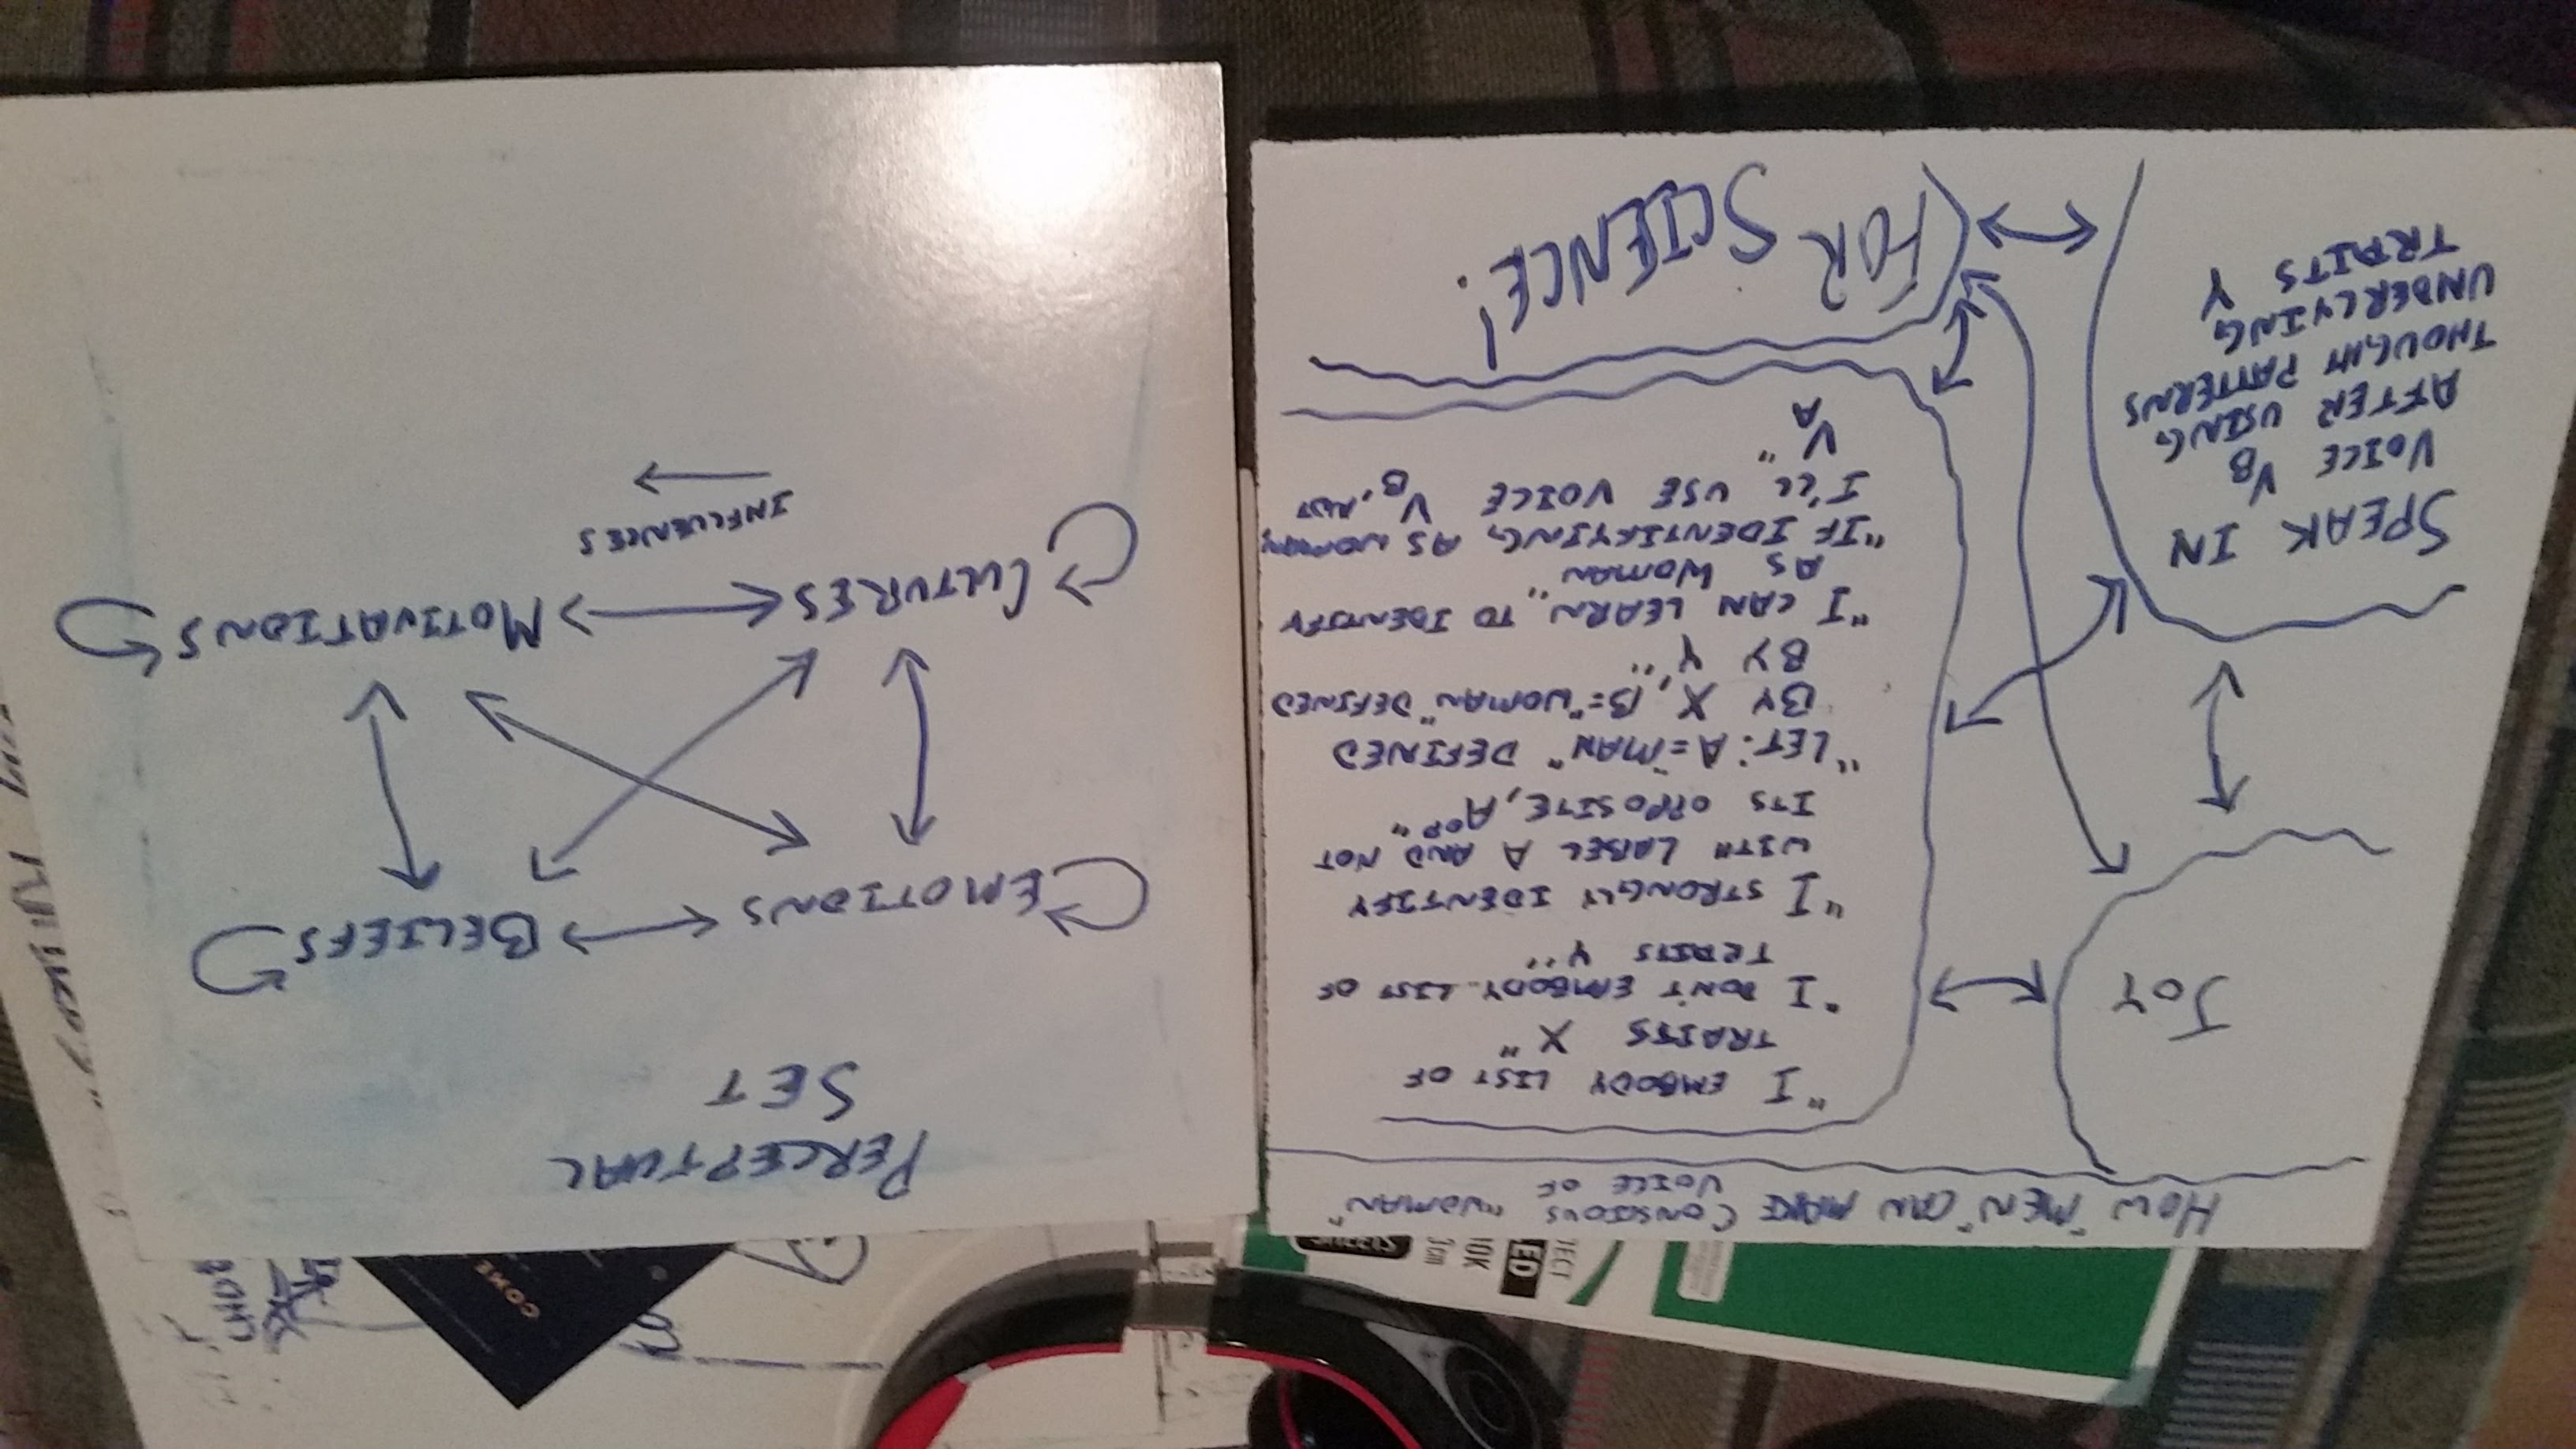 HOW "MEN" CAN MAKE CONSCIOUS "WOMAN"
VOICE OF
JOY
"I EMBODY LIST OF
TRAITS X"
"I DON'T EMBODY LIST OF
TRAITS Y"
"I STRONGLY IDENTIFY
WITH LABEL A AND NOT
ITS OPPOSITE, A^OP"
"LET: A="MAN" DEFINED
BY X, B="WOMAN" DEFINED
BY Y"
"I CAN LEARN TO IDENTIFY
AS WOMAN"
"IF IDENTIFYING AS WOMAN,
I'LL USE VOICE V_B, NOT
V_A"
SPEAK IN
VOICE V_B
AFTER USING
THOUGHT PATTERNS
UNDERLYING
TRAITS Y
FOR
SCIENCE!
PERCEPTUAL
SET
EMOTIONS
BELIEFS
CULTURES
MOTIVATIONS
INFLUENCES